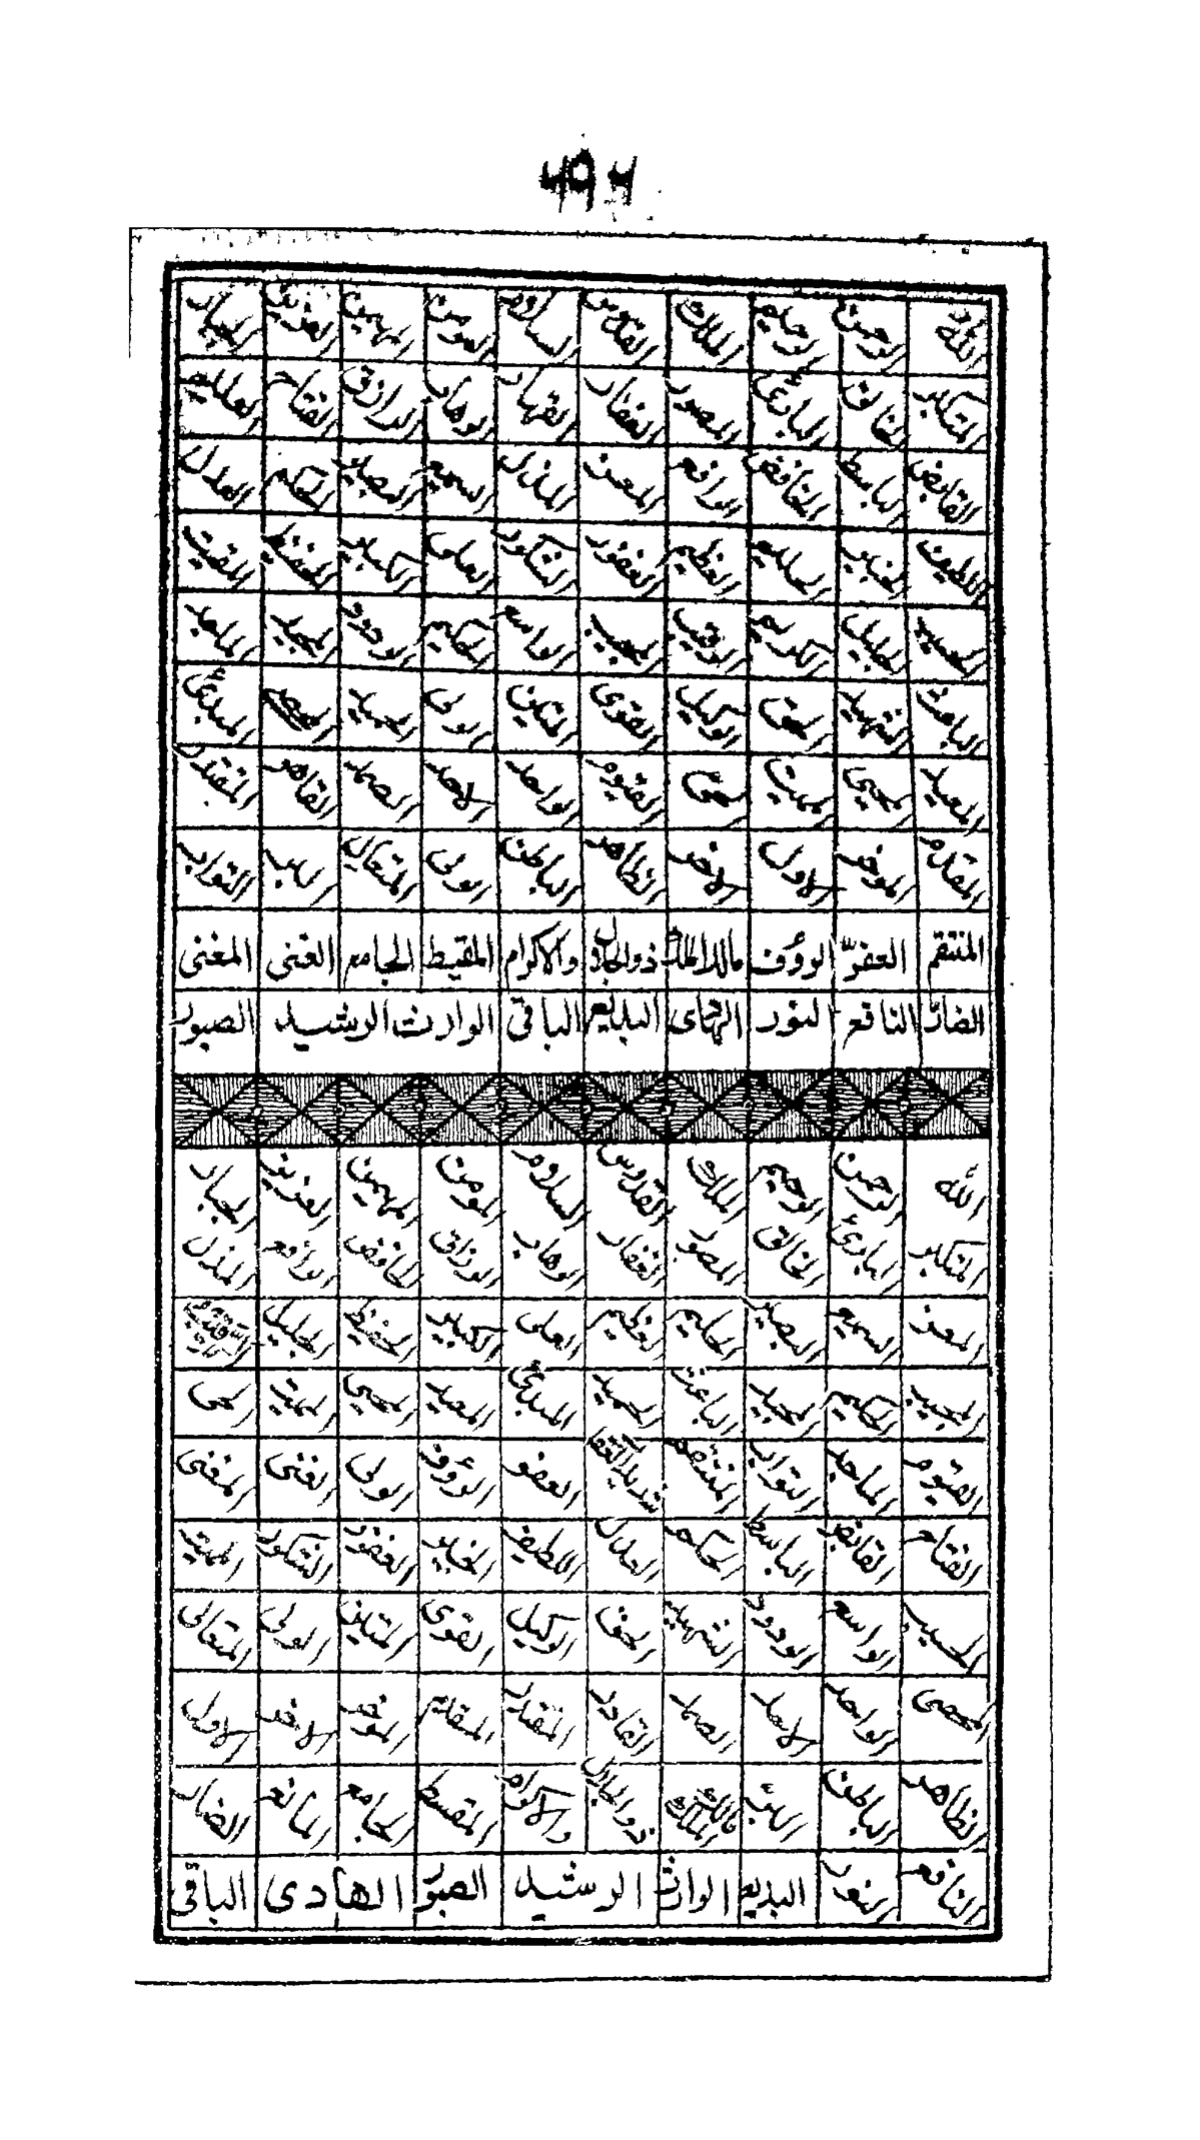 الله الرحمن الرحيم الملك القدوس السلام المومن المهيمن العزيز الجبار
المتكبر الخالق البارئ المصور الغفار القهار الوهاب الرزاق الفتاح العليم
القابض الباسط الخافض الرافع المعز المذل السميع البصير الحكم العدل
اللطيف الخبير الحليم العظيم الغفور الشكور العلى الكبير الحفيظ المقيت
الحسيب الجليل الكريم الرقيب المجيب الواسع الحكيم الودود المجيد الماجد
الباعث الشهيد الحق الوكيل القوى المتين الولى الحميد المحصى المبدئ
المعيد المحيى المميت الحى القيوم الواحد الاحد الصمد القاهر المقتدر
المقدم الموخر الاول الاخر الظاهر الباطن الولى المتعال البر التواب
المنتقم العفوّ الرؤف مالك الملك ذوالجلال والاكرام المقيط الجامع الغنى المغنى
الضار النافع النور الهادى البديع الباقى الوارث الرشيد الصبور
الله الرحمن الرحيم الملك القدوس السلام المومن المهيمن العزيز الجبار
المتكبر البارئ الخالق المصور الغفار الوهاب الرزاق الخافض الرافع المذل
المعز السميع البصير الحليم العظيم العلى الكبير الحفيظ الجليل الرقيب
المجيب الحكيم المجيد الباعث الحميد المبدئ المعيد المحيى المميت الحى
القيوم الماجد التواب المنتقم العفو الرؤف الولى الغنى المغنى
الفتاح القابض الباسط الحكم العدل اللطيف الخبير الغفور الشكور المميت
الحسيب الواسع الودود الشهيد الحق الوكيل القوى المتين الولى المتعالى
المحصى الواحد الاحد الصمد القادر المقتدر المقدم الموخر الاخر الاول
الظاهر الباطن البر مالك الملك ذوالجلال والاكرام المقسط الجامع المانع الضار
النافع النور البديع الوارث الرشيد الصبور الهادى الباقى